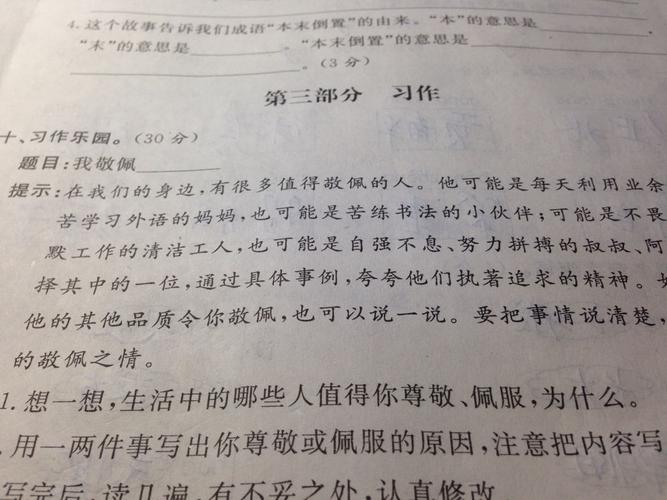 4. 这个故事告诉我们成语“本末倒置”的由来。“本”的意思是
“末”的意思是________。“本末倒置”的意思是________
________。(3分)
第三部分 习作
十、习作乐园。(30分)
题目:我敬佩________
提示:在我们的身边,有很多值得敬佩的人。他可能是每天利用业余
苦学习外语的妈妈,也可能是苦练书法的小伙伴;可能是不畏
默工作的清洁工人,也可能是自强不息、努力拼搏的叔叔、阿
择其中的一位,通过具体事例,夸夸他们执著追求的精神。如
他的其他品质令你敬佩,也可以说一说。要把事情说清楚,
的敬佩之情。
1. 想一想,生活中的哪些人值得你尊敬、佩服,为什么。
. 用一两件事写出你尊敬或佩服的原因,注意把内容写
写完后,读几遍,有不妥之处,认真修改